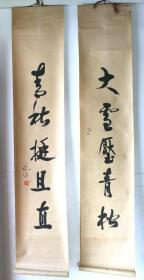 大雪壓青松
青松挺且直